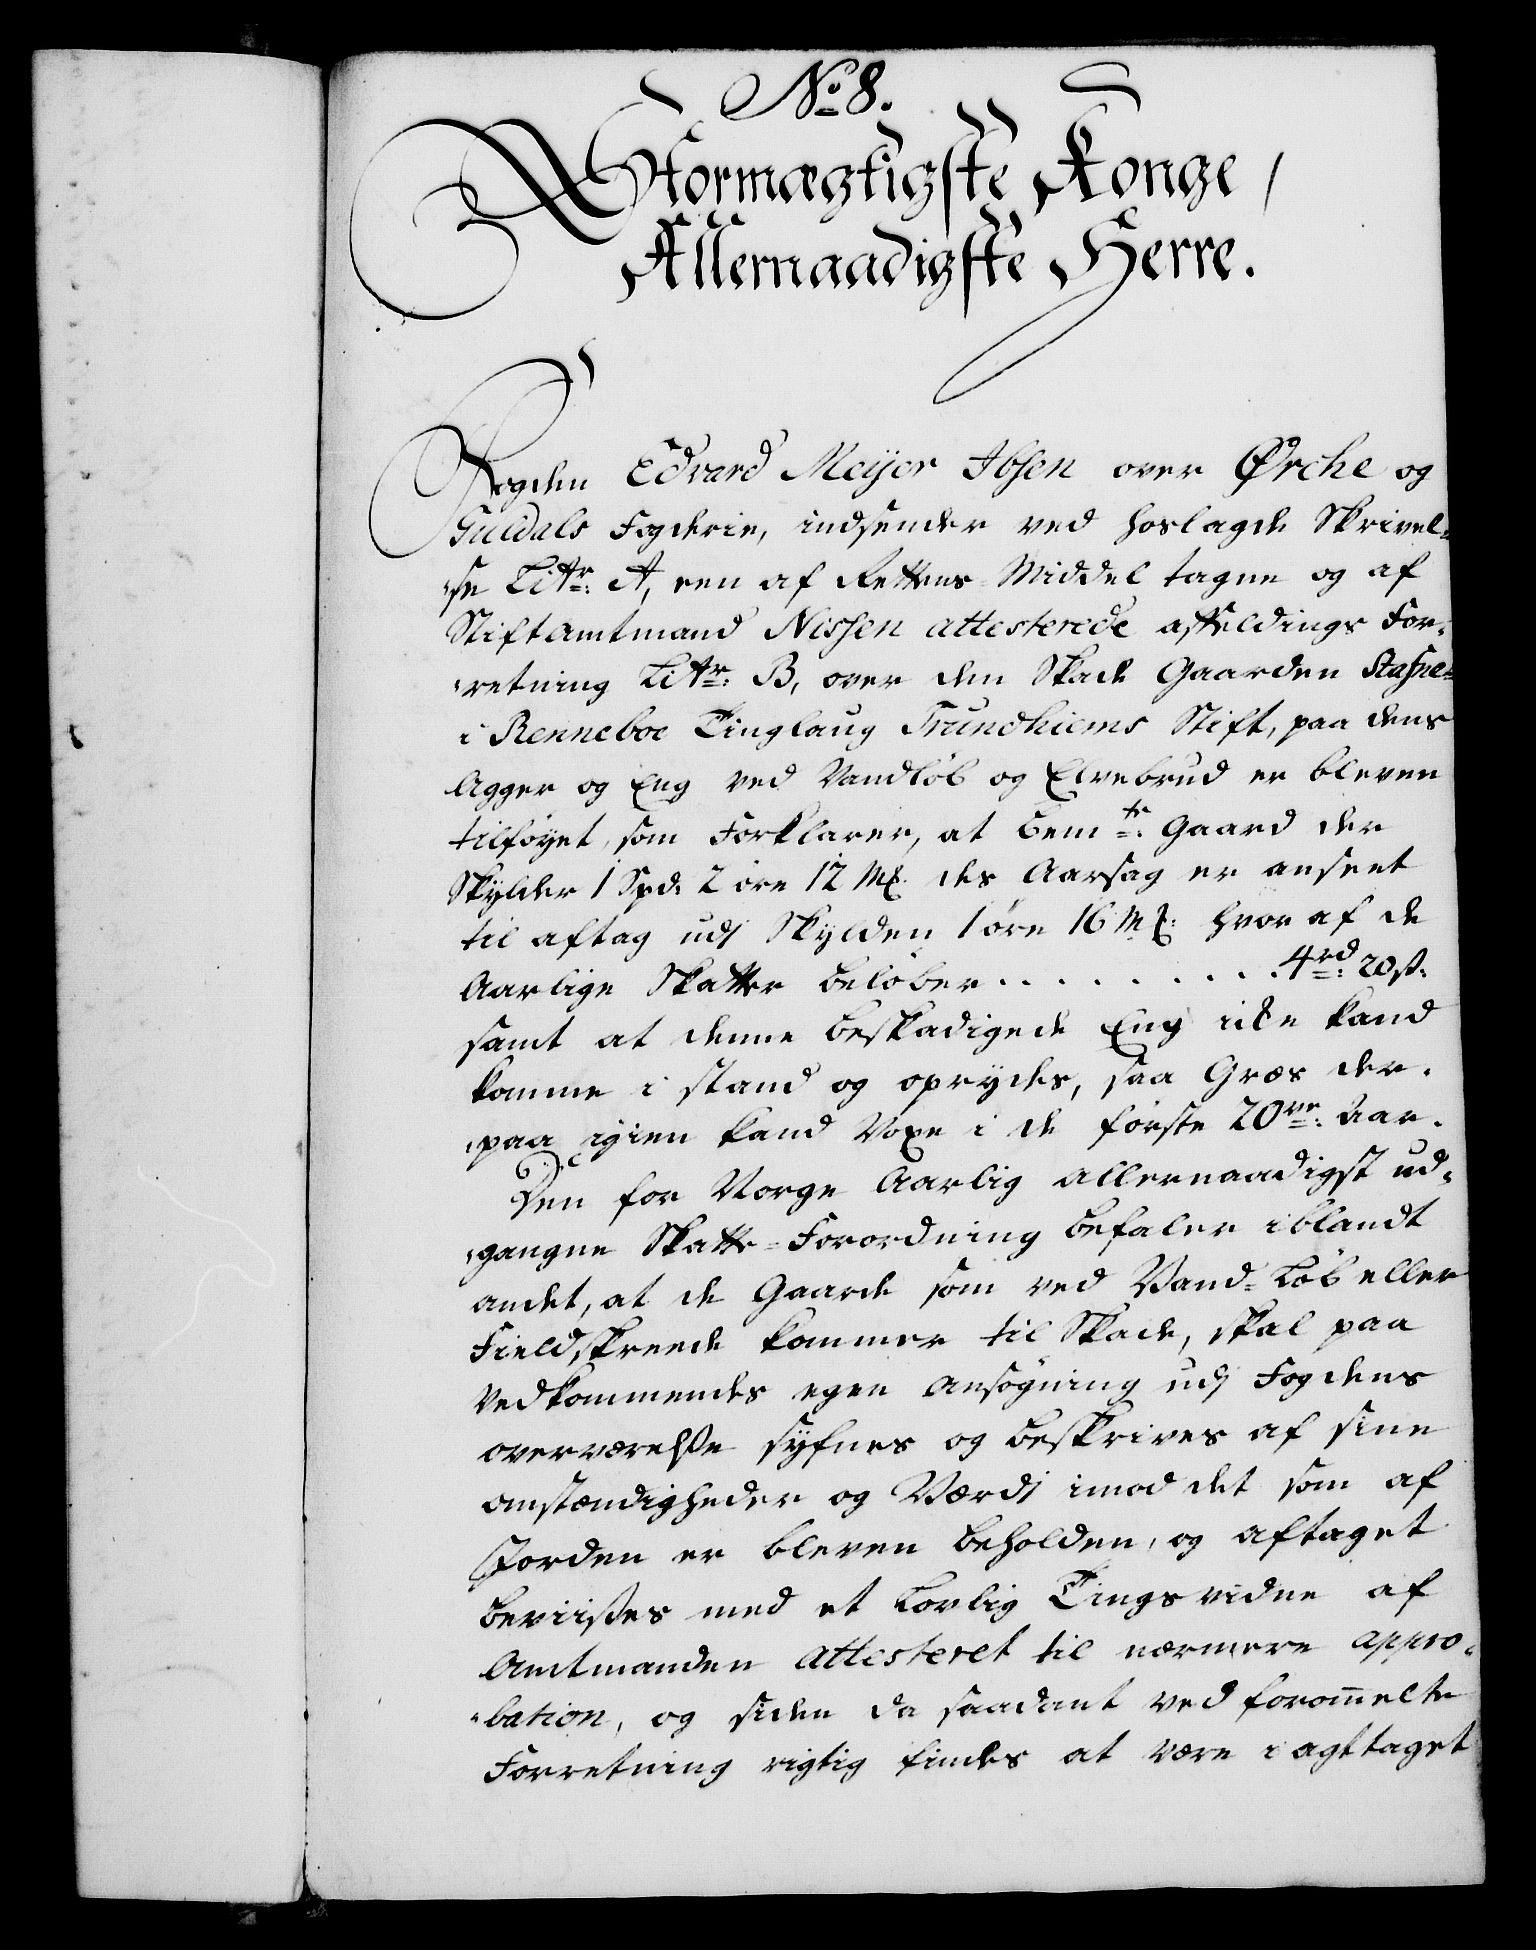 No 8.
Stormægtigste Konge /
Allernaadigste Herre.
Fogden Edvard Meijer Ibsen over Ørche og
Guldals Fogderie, indsender ved hoslagde Skrivel-
se Littr: A, een af Rettens Middel tagne og af
Stiftamtmand Nissen attesterede affældings For-
retning Littr: B, over den Skade Gaarden Stafne
i Renneboe Tinglaug Trundhiems Stift, paa dens
Agger og Eng ved Vandløb og Elvebrud er bleven
tilføyet, som Forklarer, at bemte: Gaard der
Skylder 1 Spd: 2 øre 12 Mk. des Aarsag er anseet
til aftag udj Skylden 1 øre 16 Mk: hvor af de
Aarlige Skatter beløber . . . . . . . . 4rd: 20 s:
samt at denne beskadigede Eng icke kand
komme i stand og oprydes, saa Græs der-
paa igien kand Voxe i de første 20ve: Aar.
Den for Norge Aarlig allernaadigst ud-
gangne Skatte-Forordning befaler iblandt
andet, at de Gaarde som ved Vand-Løb eller
Fieldskreede kommer til Skade, skal paa
Vedkommendes egen Ansøgning udj Fogdens
overværelse syfnes og beskrives af sine
omstændigheder og Værdj imod det som af
Jorden er bleven beholden, og aftaget
beviises med et Lovlig Tings vidne af
Amtmanden attesteret til nærmere appro-
bation, og siden da saadant ved forommelte
Forretning rigtig findes at være i agttaget